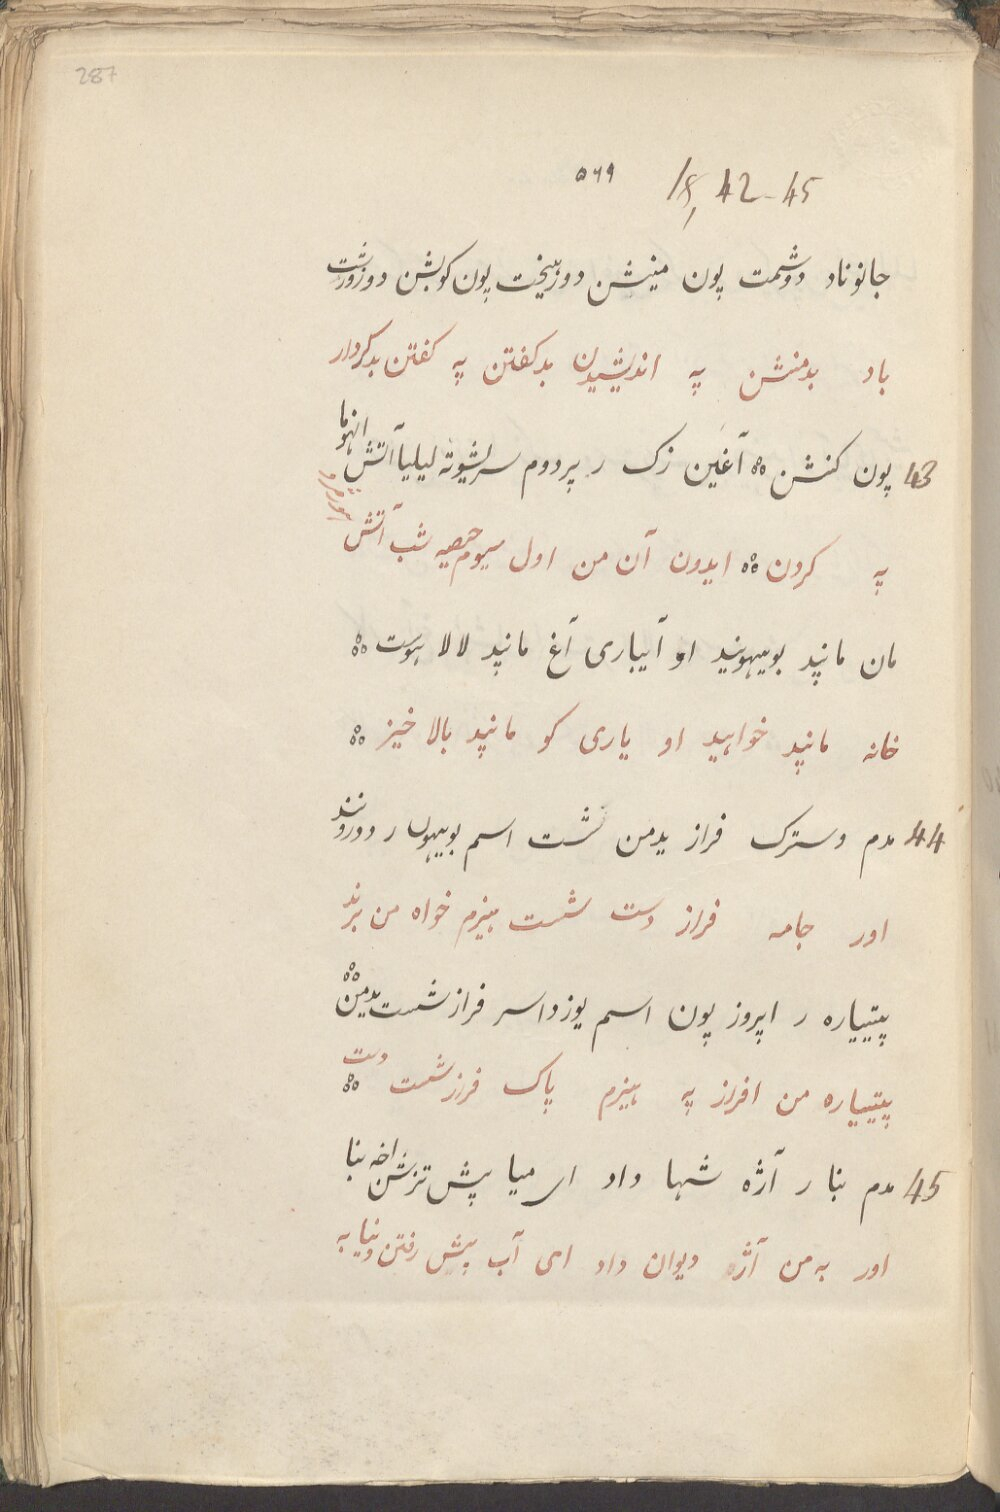 287
۵۶۹ 18, 42-45
جانوناد دوشمت پون مینشن دوزبیخت پون کوبشن دوزورشت
باد بدمنشن په اندیشیدن بدکفتن په کفتن بدکردار
43 پون کنشن آغین زک ر پردوم سریشوته لیلیا آتش انهوما
په کردن ایدون آن من اول سیوم حصیه شب آتش
مان مانپد بوییهونید او آیباری آغ مانپد لالا هوست
خانه مانپد خواهید او یاری کو مانپد بالا خیز
44 مدم وسترک فراز یدمن شست اسم بوییهون ر ودروننند
اور جامه فراز دست شست هیزم خواه من برند
پیتییاره ر اپروز پون اسم یوزداسر فراز شست یدمین
پیتییاره من افراز په هیزم پاک فرز شست دست
45 مدم بنا ر آژه شهبا داد اس میا پیش تزشن اخه بنا
اور به من آژه دیوان داد اس آب پیش رفتن دنیا به